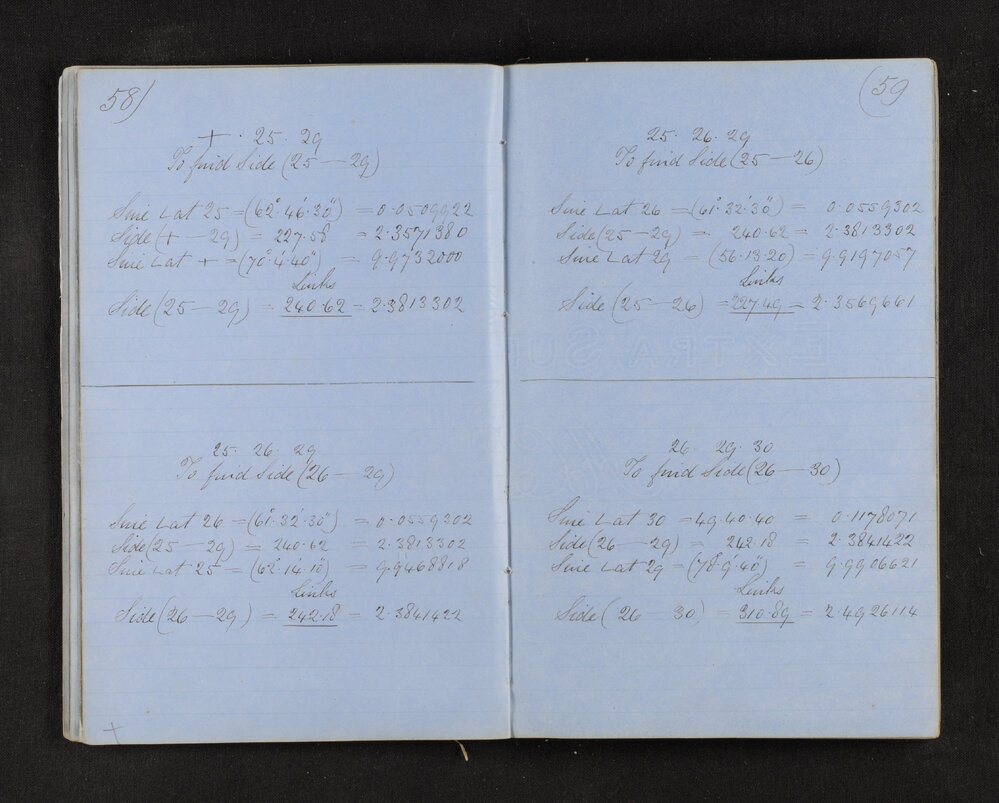 58)
+ . 25 . 29
To find Side (25 — 29)
Sine ∠ at 25 = (62°. 46'. 30") = 0.0509922
Side (+ — 29) = 227.58 = 2.3571380
Sine ∠ at + = (70°. 4'. 40") = 9.9732000
Links
Side (25 — 29) = 240.62 = 2.3813302
25. 26. 29
To find Side (26 — 29)
Sine ∠ at 26 = (61°. 32'. 30") = 0.0559302
Side (25 — 29) = 240.62 = 2.3813302
Sine ∠ at 25 = (62°. 14'. 10") = 9.9468818
Links
Side (26 — 29) = 242.18 = 2.3841422
+
(59
25. 26. 29
To find Side (25 — 26)
Sine ∠ at 26 = (61°. 32'. 30") = 0.0559302
Side (25 — 29) = 240.62 = 2.3813302
Sine ∠ at 29 = (56.13.20) = 9.9197057
Links
Side (25 — 26) = 227.49 = 2.3569661
26 29. 30
To find Side (26 — 30)
Sine ∠ at 30 = 49.40.40 = 0.1178071
Side (26 — 29) = 242.18 = 2.3841422
Sine ∠ at 29 = (78°. 9'. 40") = 9.9906621
Links
Side (26 — 30) = 310.89 = 2.4926114